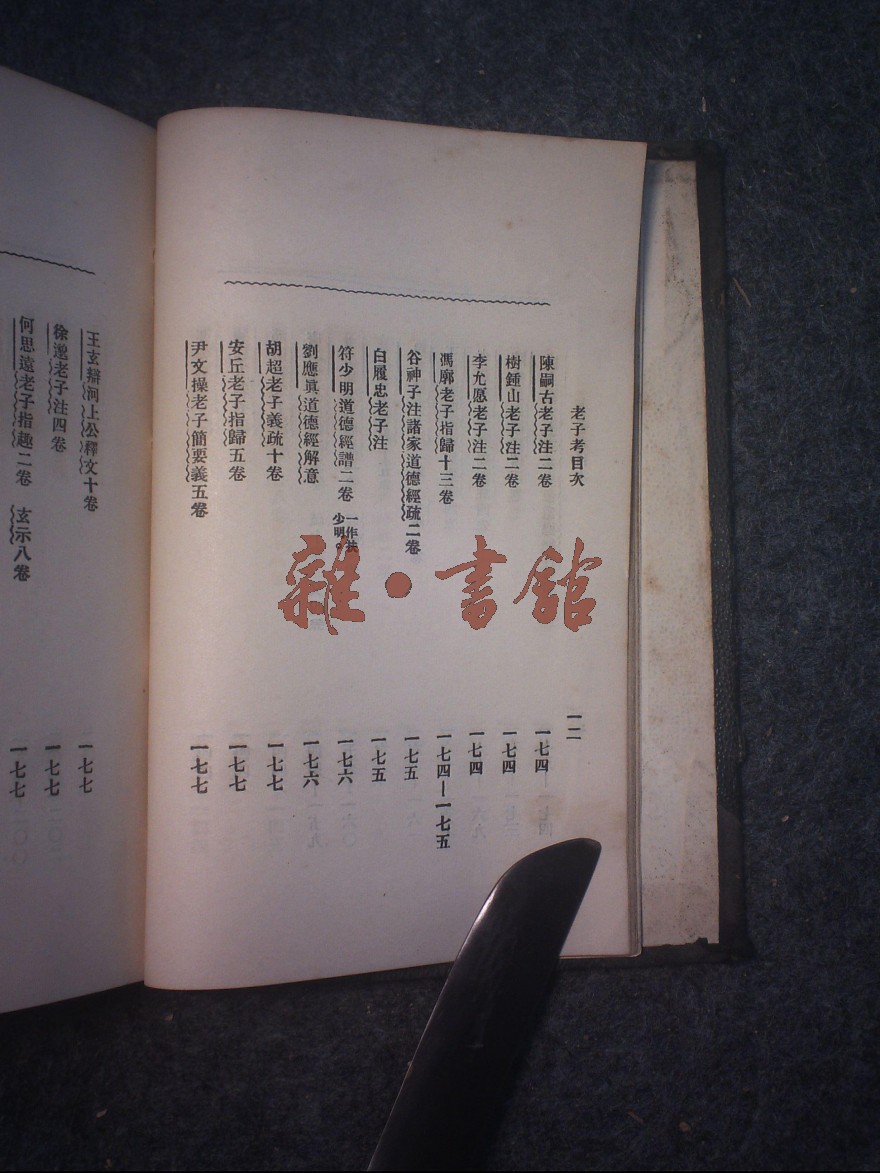 老子考目次
一二
陳嗣古老子注二卷 一七四
樹鍾山老子注二卷 一七四
李允愿老子注二卷 一七四
馮廓老子指歸十三卷 一七四—一七五
谷神子注諸家道德經疏二卷 一七五
白履忠老子注 一七五
符少明道德經譜二卷 一作扶少明。 一七六
劉應眞道德經解意 一七六
胡超老子義疏十卷 一七七
安丘老子指歸五卷 一七七
尹文操老子簡要義五卷 一七七
王玄辯河上公釋文十卷 一七七
徐邈老子注四卷 一七七
何思遠老子指趣二卷 玄示八卷 一七七
雜·書館